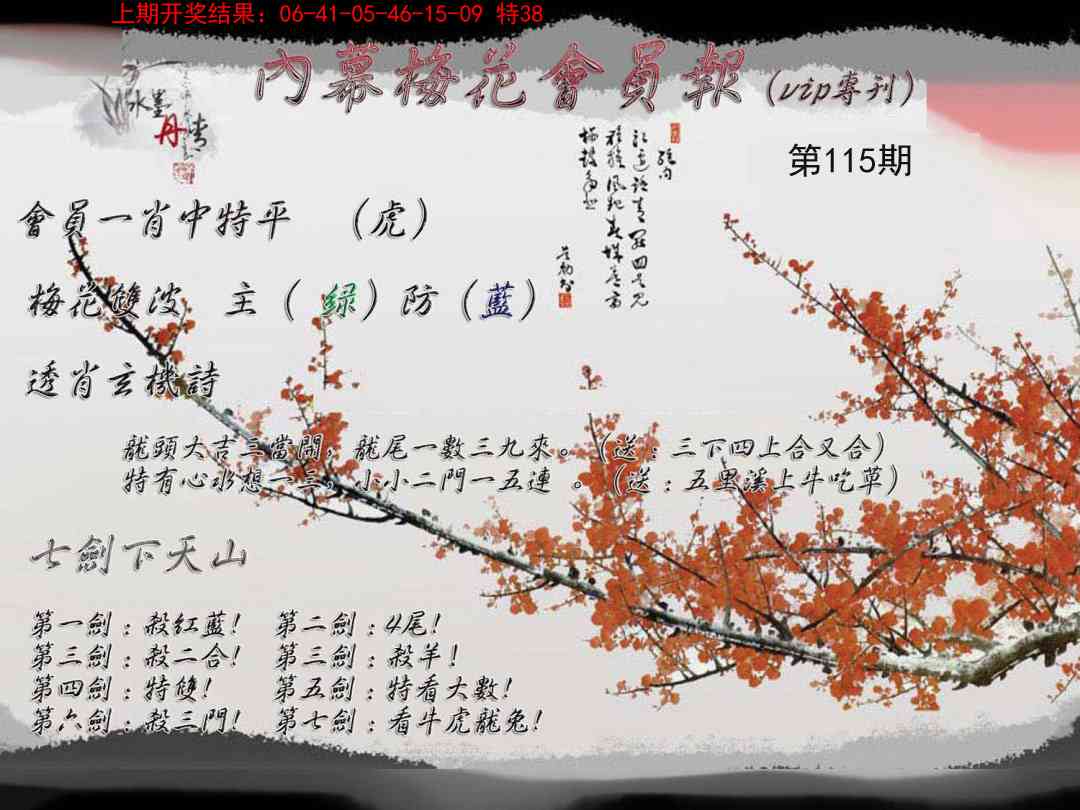 上期开奖结果：06-41-05-46-15-09 特38
內幕梅花會員報（vip專刊）
水墨丹青
第115期
會員一肖中特平 （虎）
梅花雙波 主（綠）防（藍）
透肖玄機詩
龍頭大吉三當開，龍尾一數三九來。（送：三下四上合又合）
特有心水想一三，小小二門一五連 。（送：五里溪上牛吃草）
七劍下天山
第一劍：殺紅藍！ 第二劍：4尾！
第三劍：殺二合！ 第三劍：殺羊！
第四劍：特雙！ 第五劍：特看大數！
第六劍：殺三門！ 第七劍：看牛虎龍兔！